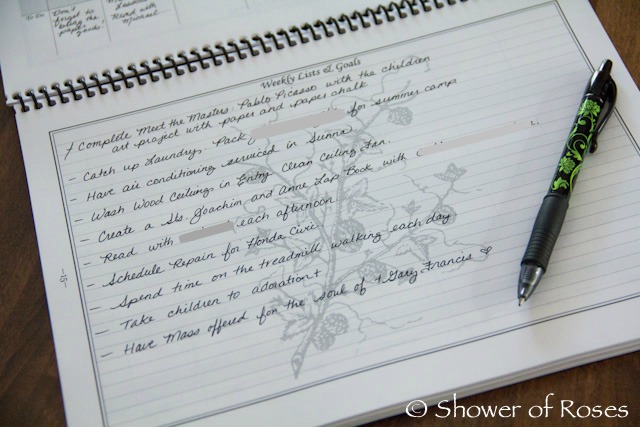 To Do
Don't forget to bring the paper goods!
Read with Michael
Weekly Lists & Goals
/ Complete Meet the Masters: Pablo Picasso with the children
art project with paper and paper chalk
- Catch up Laundry. Pack for summer camp
- Have air conditioning serviced in Sienna
- Wash Wood Ceilings in Entry Clean Ceiling Fan.
- Create a Sts. Joachim and Anne Lap Book with
- Read with each afternoon
- Schedule Repair for Honda Civic
- Spend time on the treadmill walking each day
- Take children to adoration +
- Have Mass offered for the soul of + Gary Francis ♡
-15-
© Shower of Roses